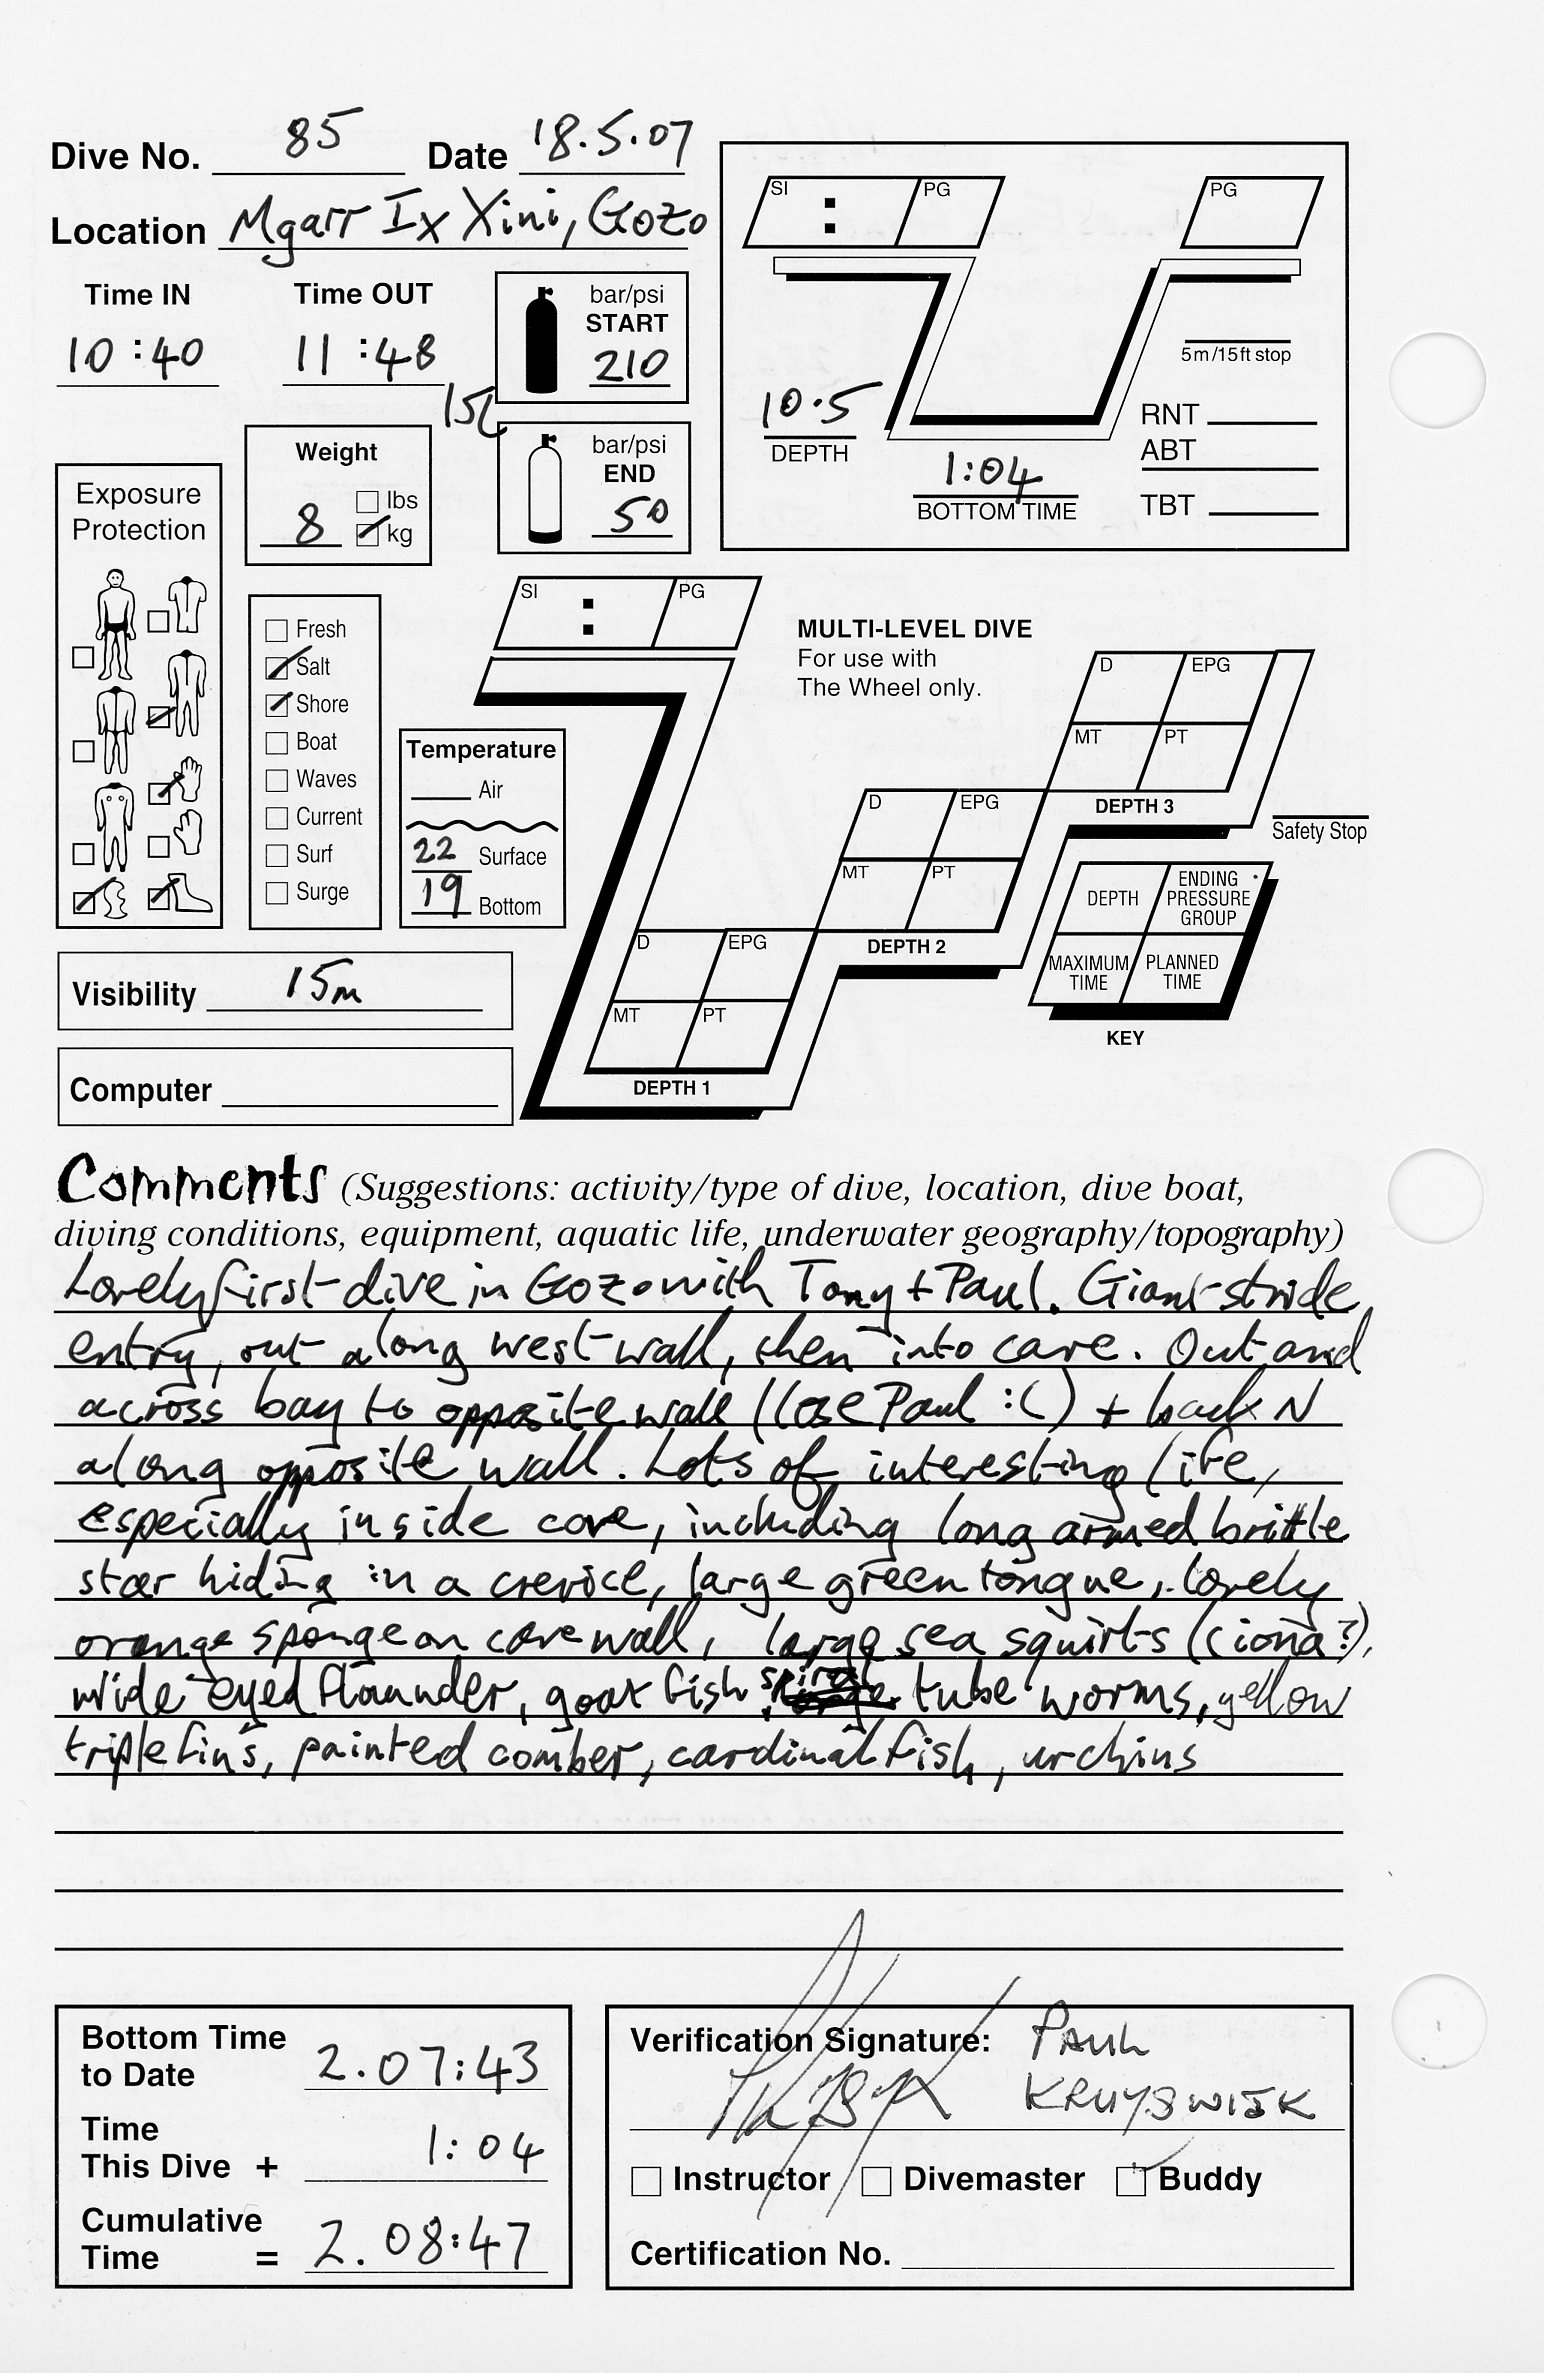 Dive No. 85 Date 18.5.07
Location Mgarr Ix Xini, Gozo
Time IN Time OUT
10:40 11:48
15L
bar/psi
START
210
bar/psi
END
50
Weight
8
lbs
kg
Exposure
Protection
Fresh
Salt
Shore
Boat
Waves
Current
Surf
Surge
Temperature
Air
22 Surface
19 Bottom
Visibility 15m
Computer
SI : PG PG
5m/15ft stop
10.5
DEPTH
1:04
BOTTOM TIME
RNT
ABT
TBT
SI : PG
MULTI-LEVEL DIVE
For use with
The Wheel only.
D EPG
MT PT
DEPTH 3
D EPG
MT PT
DEPTH 2
D EPG
MT PT
DEPTH 1
Safety Stop
DEPTH ENDING PRESSURE GROUP
MAXIMUM TIME PLANNED TIME
KEY
Comments (Suggestions: activity/type of dive, location, dive boat,
diving conditions, equipment, aquatic life, underwater geography/topography)
Lovely first dive in Gozo with Tony + Paul. Giant stride
entry, out along west wall, then into cave. Out and
across bay to opposite wall (lose Paul :( ) + back N
along opposite wall. Lots of interesting life,
especially inside cave, including long armed brittle
star hiding in a crevice, large green tongue, lovely
orange sponge on cave wall, large sea squirts (ciona?),
wide eyed flounder, goat fish spiral tube worms, yellow
triplefins, painted comber, cardinal fish, urchins
Bottom Time
to Date 2.07:43
Time
This Dive + 1:04
Cumulative
Time = 2.08:47
Verification Signature: PAUL
KRUYSWIJK
Instructor Divemaster Buddy
Certification No.